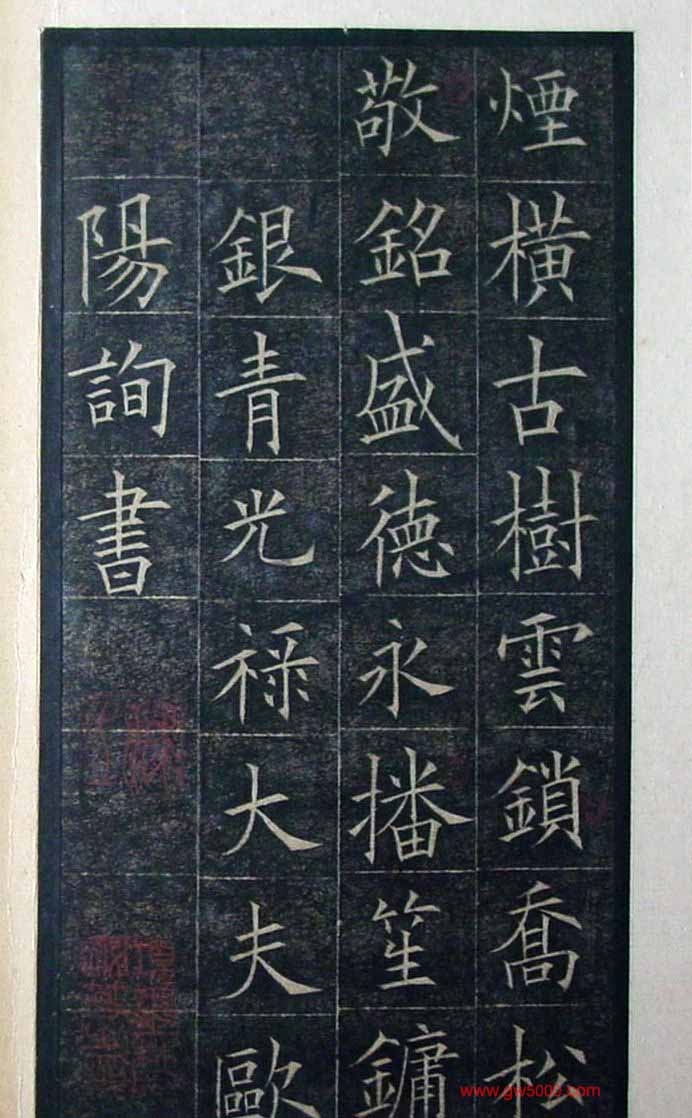 煙橫古樹雲鎖喬松
敬銘盛德永播笙鏞
銀青光祿大夫歐
陽詢書
www.gw5000.com